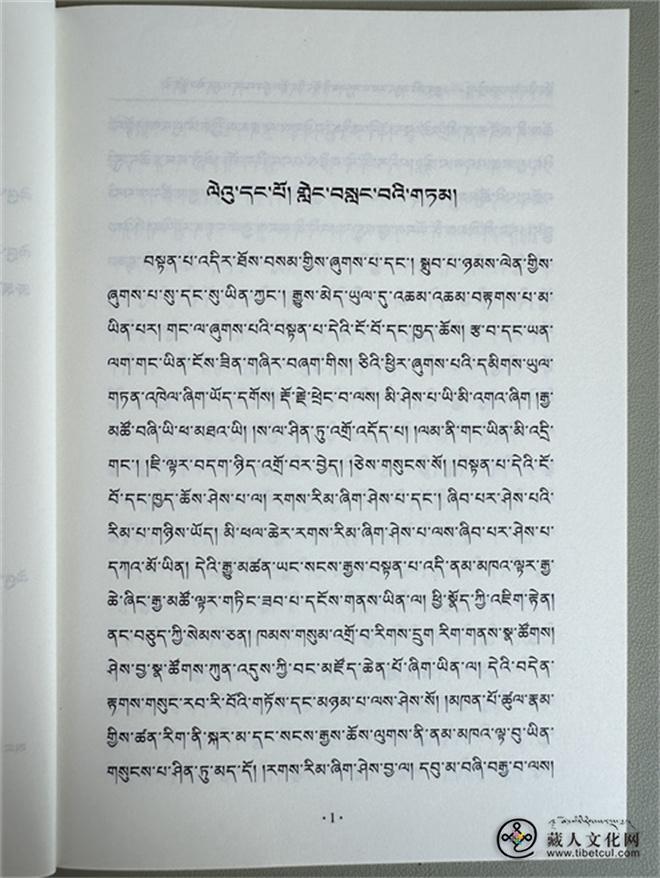 ལེའུ་དང་པོ། གླེང་བསླང་བའི་གཏམ།
བསྟན་པ་འདིར་ཐོས་བསམ་གྱིས་ཞུགས་པ་དང་། སྒྲུབ་པ་ཉམས་ལེན་གྱིས་
ཞུགས་པ་སུ་དང་སུ་ཡིན་ཀྱང་། རྒྱུས་མེད་ཡུལ་དུ་འཆམ་འཆམ་བརྟགས་པ་མ་
ཡིན་པར། གང་ལ་ཞུགས་པའི་བསྟན་པ་དེའི་ངོ་བོ་དང་ཁྱད་ཆོས། རྩ་བ་དང་ཡན་
ལག་གང་ཡིན་ངོས་ཟིན་གཞིར་བཞག་གིས། ཅིའི་ཕྱིར་ཞུགས་པའི་དམིགས་ཡུལ་
གཏན་འཁེལ་ཞིག་ཡོད་དགོས། རྡོ་རྗེ་ཕྲེང་བ་ལས། མི་ཤེས་པ་ཡི་མི་འགའ་ཞིག །རྒྱ་
མཚོ་བཞི་ཡི་ཕ་མཐའ་ཡི། །ས་ལ་ཤིན་ཏུ་འགྲོ་འདོད་པ། །ལམ་ནི་གང་ཡིན་མི་འདྲི་
གང་། །ཇི་ལྟར་བདག་ཉིད་འགྲོ་བར་བྱེད། །ཅེས་གསུངས་སོ། །བསྟན་པ་དེའི་ངོ་
བོ་དང་ཁྱད་ཆོས་ཤེས་པ་ལ། རགས་རིམ་ཞིག་ཤེས་པ་དང་། ཞིབ་པར་ཤེས་པའི་
རིམ་པ་གཉིས་ཡོད། མི་ཕལ་ཆེར་རགས་རིམ་ཞིག་ཤེས་པ་ལས་ཞིབ་པར་ཤེས་པ་
དཀའ་མོ་ཡིན། དེའི་རྒྱུ་མཚན་ཡང་སངས་རྒྱས་བསྟན་པ་འདི་ནམ་མཁའ་ལྟར་རྒྱ་
ཆེ་ཞིང་རྒྱ་མཚོ་ལྟར་གཏིང་ཟབ་པ་དངོས་གནས་ཡིན་ལ། ཕྱི་སྣོད་ཀྱི་འཇིག་རྟེན།
ནང་བཅུད་ཀྱི་སེམས་ཅན། ཁམས་གསུམ་འགྲོ་བ་རིགས་དྲུག རིག་གནས་སྣ་ཚོགས།
ཤེས་བྱ་སྣ་ཚོགས་ཀུན་འདུས་ཀྱི་བང་མཛོད་ཆེན་པོ་ཞིག་ཡིན་ལ། དེའི་བདེན་
རྟགས་གསུང་རབ་རི་བོའི་གཏོས་དང་མཉམ་པ་ལས་ཤེས་སོ། །མཁན་པོ་ཚུལ་རྣམ་
གྱིས་ཚན་རིག་ནི་སྐར་མ་དང་སངས་རྒྱས་ཆོས་ལུགས་ནི་ནམ་མཁའ་ལྟ་བུ་ཡིན་
གསུངས་པ་ཤིན་ཏུ་མད་དོ། །རགས་རིམ་ཞིག་ཤེས་བྱ་ལ། དབུ་མ་བཞི་བརྒྱ་བ་ལས།
·1·
藏人文化网
www.tibetcul.com